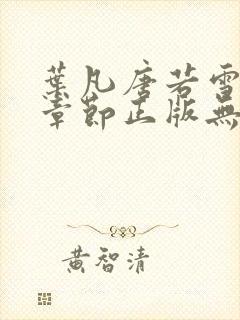 葉凡唐若雪
章節正版無
黄智清